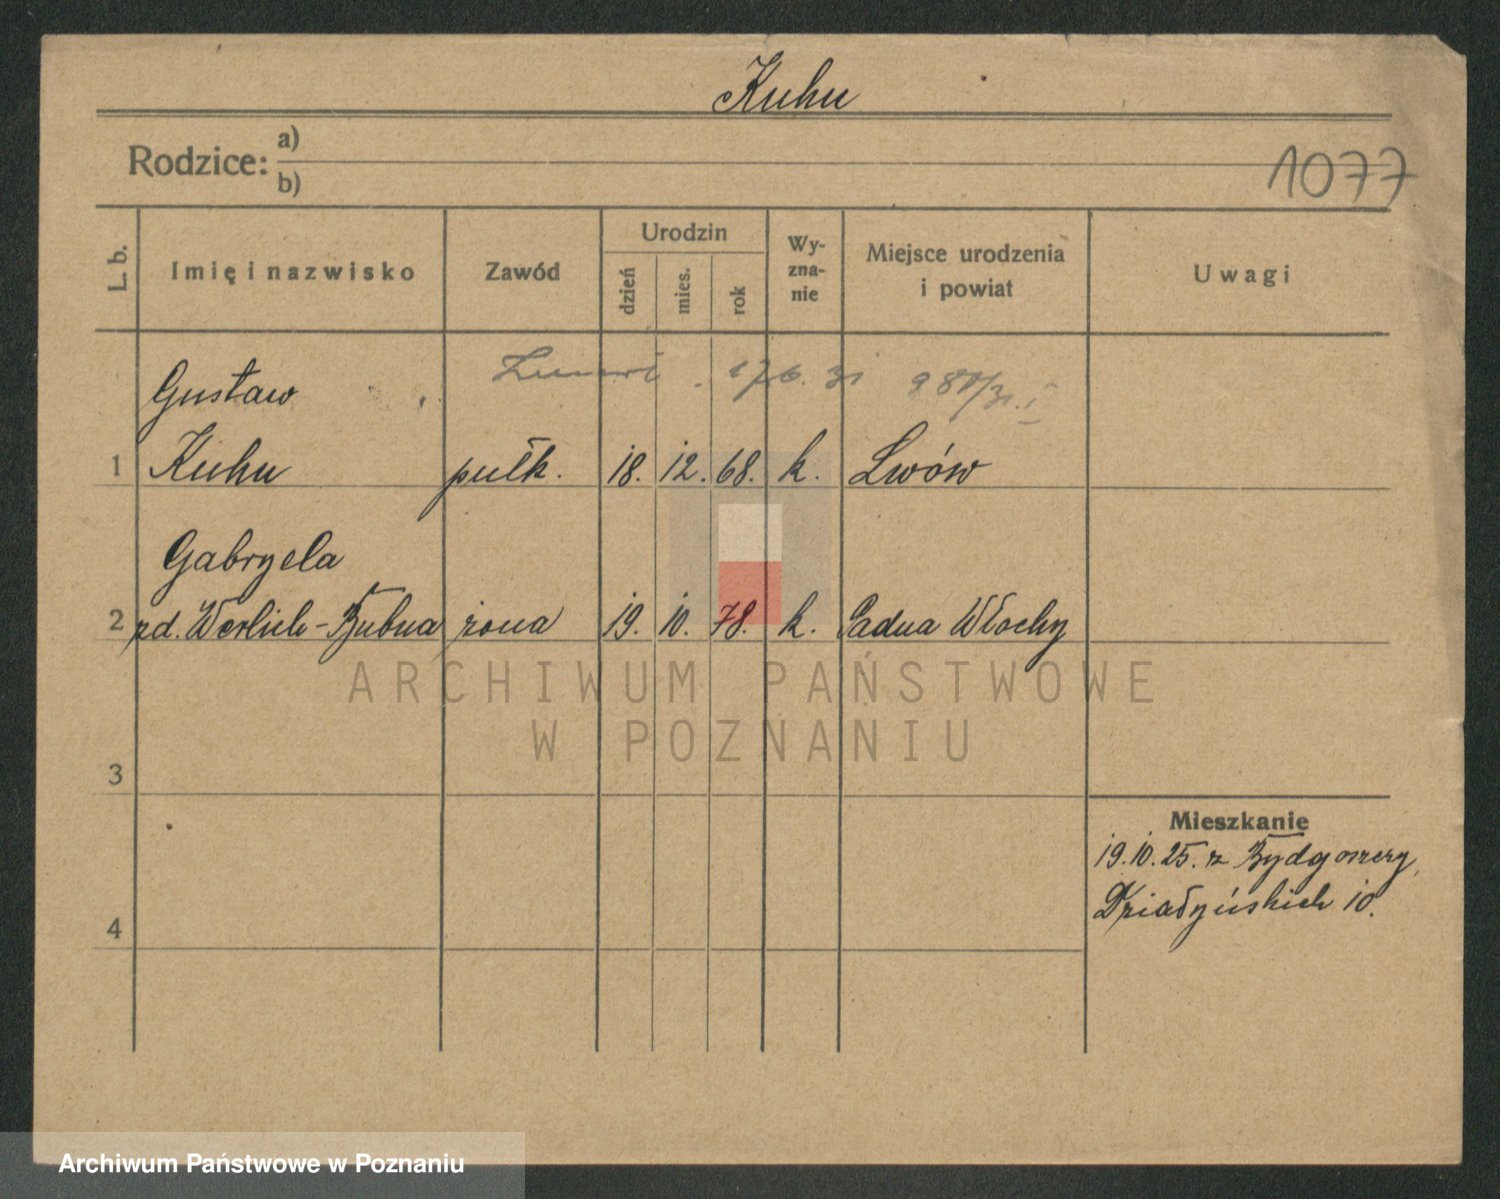 Kuhn
Rodzice: a)
b)
1077
L. b.
Imię i nazwisko
Zawód
Urodzin
dzień
mies.
rok
Wy-
zna-
nie
Miejsce urodzenia
i powiat
Uwagi
Zmarł . 17.6.31
Gustaw
1 Kuhn pułk. 18. 12. 68. k. Lwów
Gabryela
2 zd. Werlich- żona 19. 10. 78. k. Padua Włochy
ARCHIWUM PAŃSTWOWE
W POZNANIU
3
Mieszkanie
19.10.25. z Bydgoszczy,
Działyńskich 10.
4
Archiwum Państwowe w Poznaniu